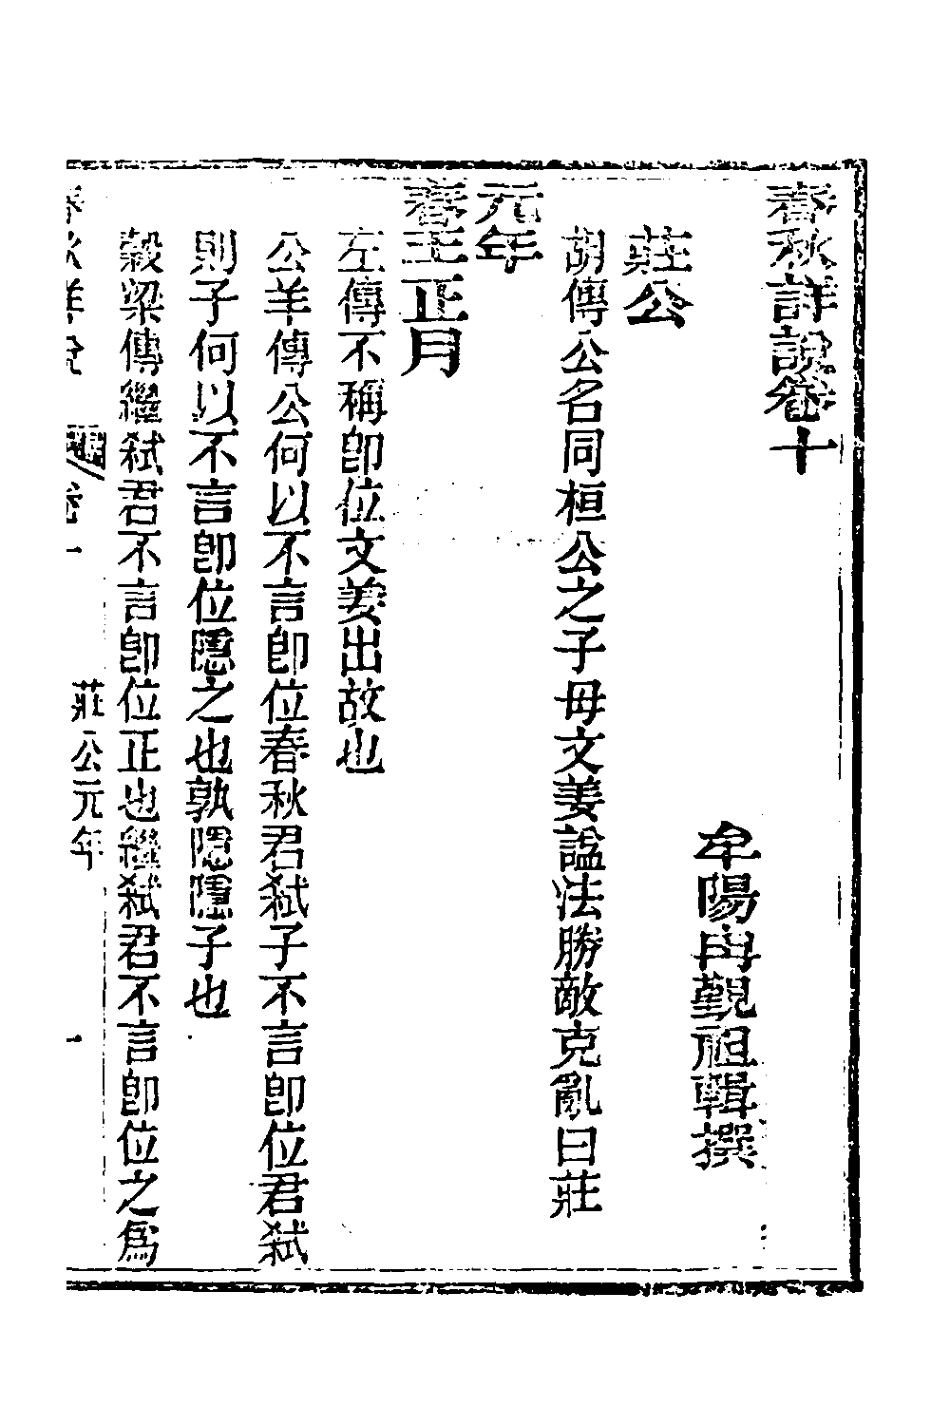 春秋詳說卷十
牟陽冉覲祖輯撰
莊公
胡傳公名同桓公之子母文姜諡法勝敵克亂曰莊
元年
春王正月
左傳不稱卽位文姜出故也
公羊傳公何以不言卽位春秋君弒子不言卽位君弒
則子何以不言卽位隱之也孰隱隱子也
榖梁傳繼弒君不言卽位正也繼弒君不言卽位之爲
莊公元年